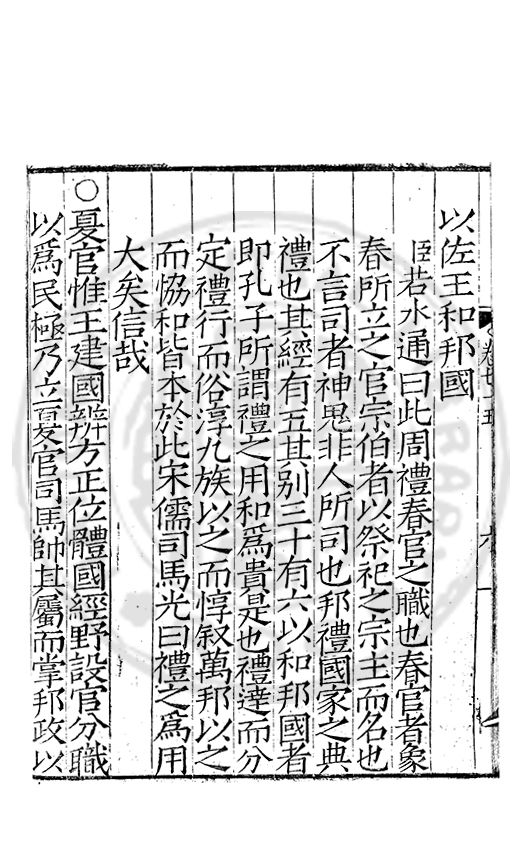 以佐王和邦國
臣若水通曰此周禮春官之職也春官者象
春所立之官宗伯者以祭祀之宗主而名也
不言司者神鬼非人所司也邦禮國家之典
禮也其經有五其别三十有六以和邦國者
即孔子所謂禮之用和為貴是也禮達而分
定禮行而俗淳九族以之而惇叙萬邦以之
而恊和皆本於此宋儒司馬光曰禮之為用
大矣信哉
○夏官惟王建國辨方正位體國經野設官分職
以為民極乃立夏官司馬帥其屬而掌邦政以